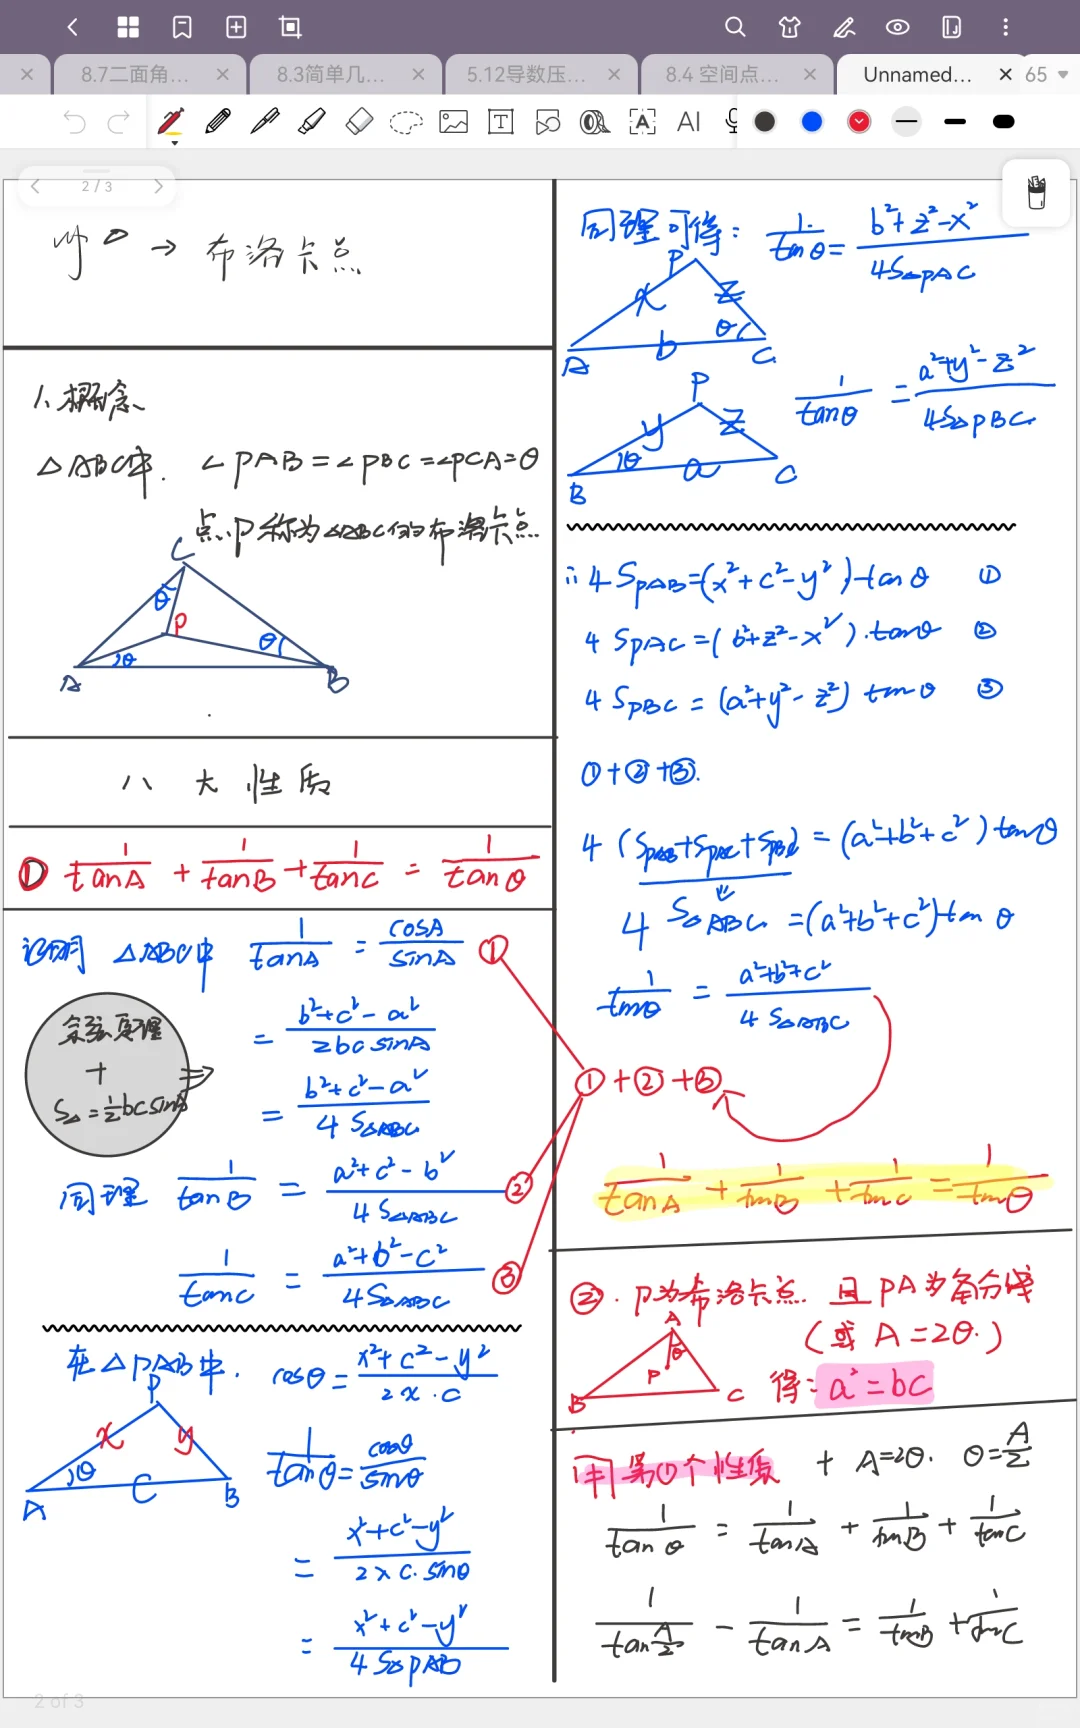 8.7二面角...
8.3简单几...
5.12导数压...
8.4 空间点...
Unnamed...
65
AI
2/3
→ 布洛卡点
1、概念
△ABC中. ∠PAB=∠PBC=∠PCA=θ
点P称为△ABC的布洛卡点
C
θ
P
θ
θ
A
B
八大性质
① 1/tanA + 1/tanB + 1/tanC = 1/tanθ
证明 △ABC中 1/tanA = cosA/sinA ①
余弦定理
+
S△=½bcsinA
= (b²+c²-a²)/(2bc sinA)
= (b²+c²-a²)/(4S△ABC)
同理 1/tanB = (a²+c²-b²)/(4S△ABC) ②
1/tanC = (a²+b²-c²)/(4S△ABC) ③
在△PAB中. cosθ = (x²+c²-y²)/(2x·c)
P
x
y
θ
A
C
B
1/tanθ = cosθ/sinθ
= (x²+c²-y²)/(2xc·sinθ)
= (x²+c²-y²)/(4S△PAB)
2 of 3
同理可得: 1/tanθ = (b²+z²-x²)/(4S△PAC)
P
x
z
θ
A
b
C
1/tanθ = (a²+y²-z²)/(4S△PBC)
P
y
z
θ
B
a
C
∴ 4S_PAB=(x²+c²-y²)tanθ ①
4S_PAC=(b²+z²-x²)·tanθ ②
4S_PBC=(a²+y²-z²)tanθ ③
①+②+③.
4(S_PAB+S_PAC+S_PBC)=(a²+b²+c²)tanθ
4S△ABC=(a²+b²+c²)tanθ
1/tanθ = (a²+b²+c²)/(4S△ABC)
①+②+③
1/tanA + 1/tanB + 1/tanC = 1/tanθ
②. P为布洛卡点. 且PA为角分线
(或A=2θ.)
A
θ
P
B
C
得: a²=bc
用第①个性质 + A=2θ. θ=A/2
1/tanθ = 1/tanA + 1/tanB + 1/tanC
1/tan(A/2) - 1/tanA = 1/tanB + 1/tanC